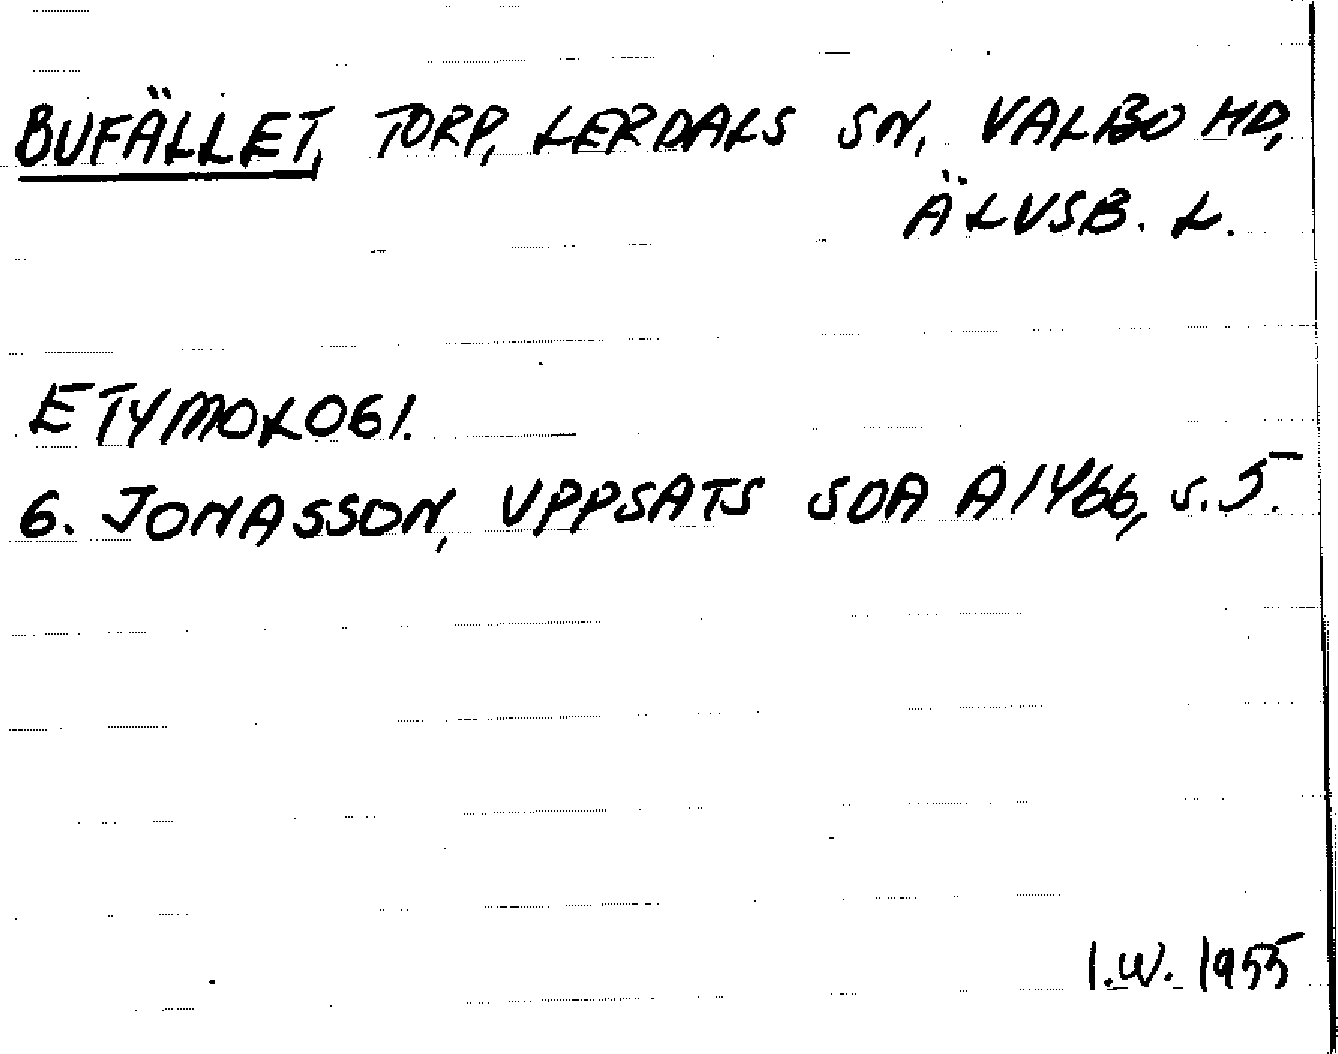 BUFÄLLET, TORP, LERDALS SN, VALBO HD,
ÄLVSB. L.
ETYMOLOGI.
G. JONASSON, UPPSATS SOA A1466, s. 5.
I.W. 1955